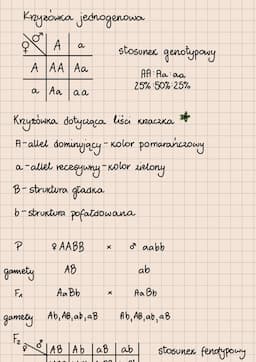 Krzyżówka jednogenowa
♀ ♂ A a
A AA Aa
a Aa aa
stosunek genotypowy
AA : Aa : aa
25% : 50% : 25%
Krzyżówka dotycząca liści knaczka
A - allel dominujący - kolor pomarańczowy
a - allel recesywny - kolor zielony
B - struktura gładka
b - struktura pofałdowana
P ♀ AABB × ♂ aabb
gamety AB ab
F₁ AaBb × AaBb
gamety Ab, AB, ab, aB Ab, AB, ab, aB
F₂ ♀ ♂ AB Ab aB ab stosunek fenotypowy